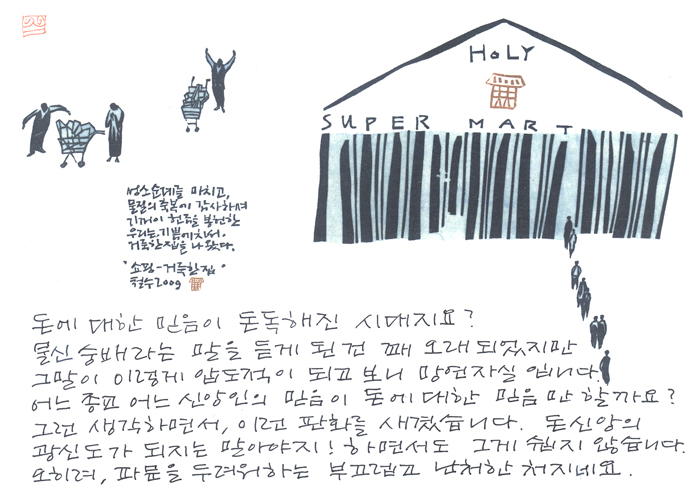 HOLY
SUPER MART
성소순례를 마치고,
물질의 축복에 감사하며
기꺼이 헌금을 봉헌한
우리는, 기쁨에 차서,
거룩한 집을 나섰다.
"쇼핑-거룩한 집"
철수 2009
돈에 대한 믿음이 돈독해진 시대지요?
물신 숭배라는 말을 듣게 된 건 꽤 오래 되었지만
그말이 이렇게 압도적이 되고 보니 망연자실 입니다.
어느 종교 어느 신앙인의 믿음이 돈에 대한 믿음 만 할까요?
그런 생각하면서, 이런 판화를 새겼습니다. 돈 신앙의
광신도가 되지는 말아야지! 하면서도 그게 쉽지 않습니다.
오히려, 파문을 두려워하는 부끄럽고 난처한 처지네요.